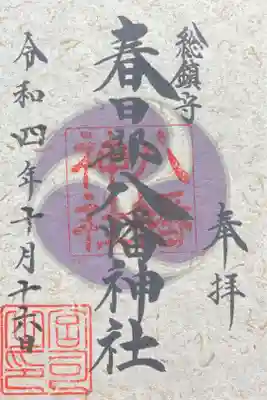 奉拝
総鎮守
春日部八幡神社
令和四年十月十六日